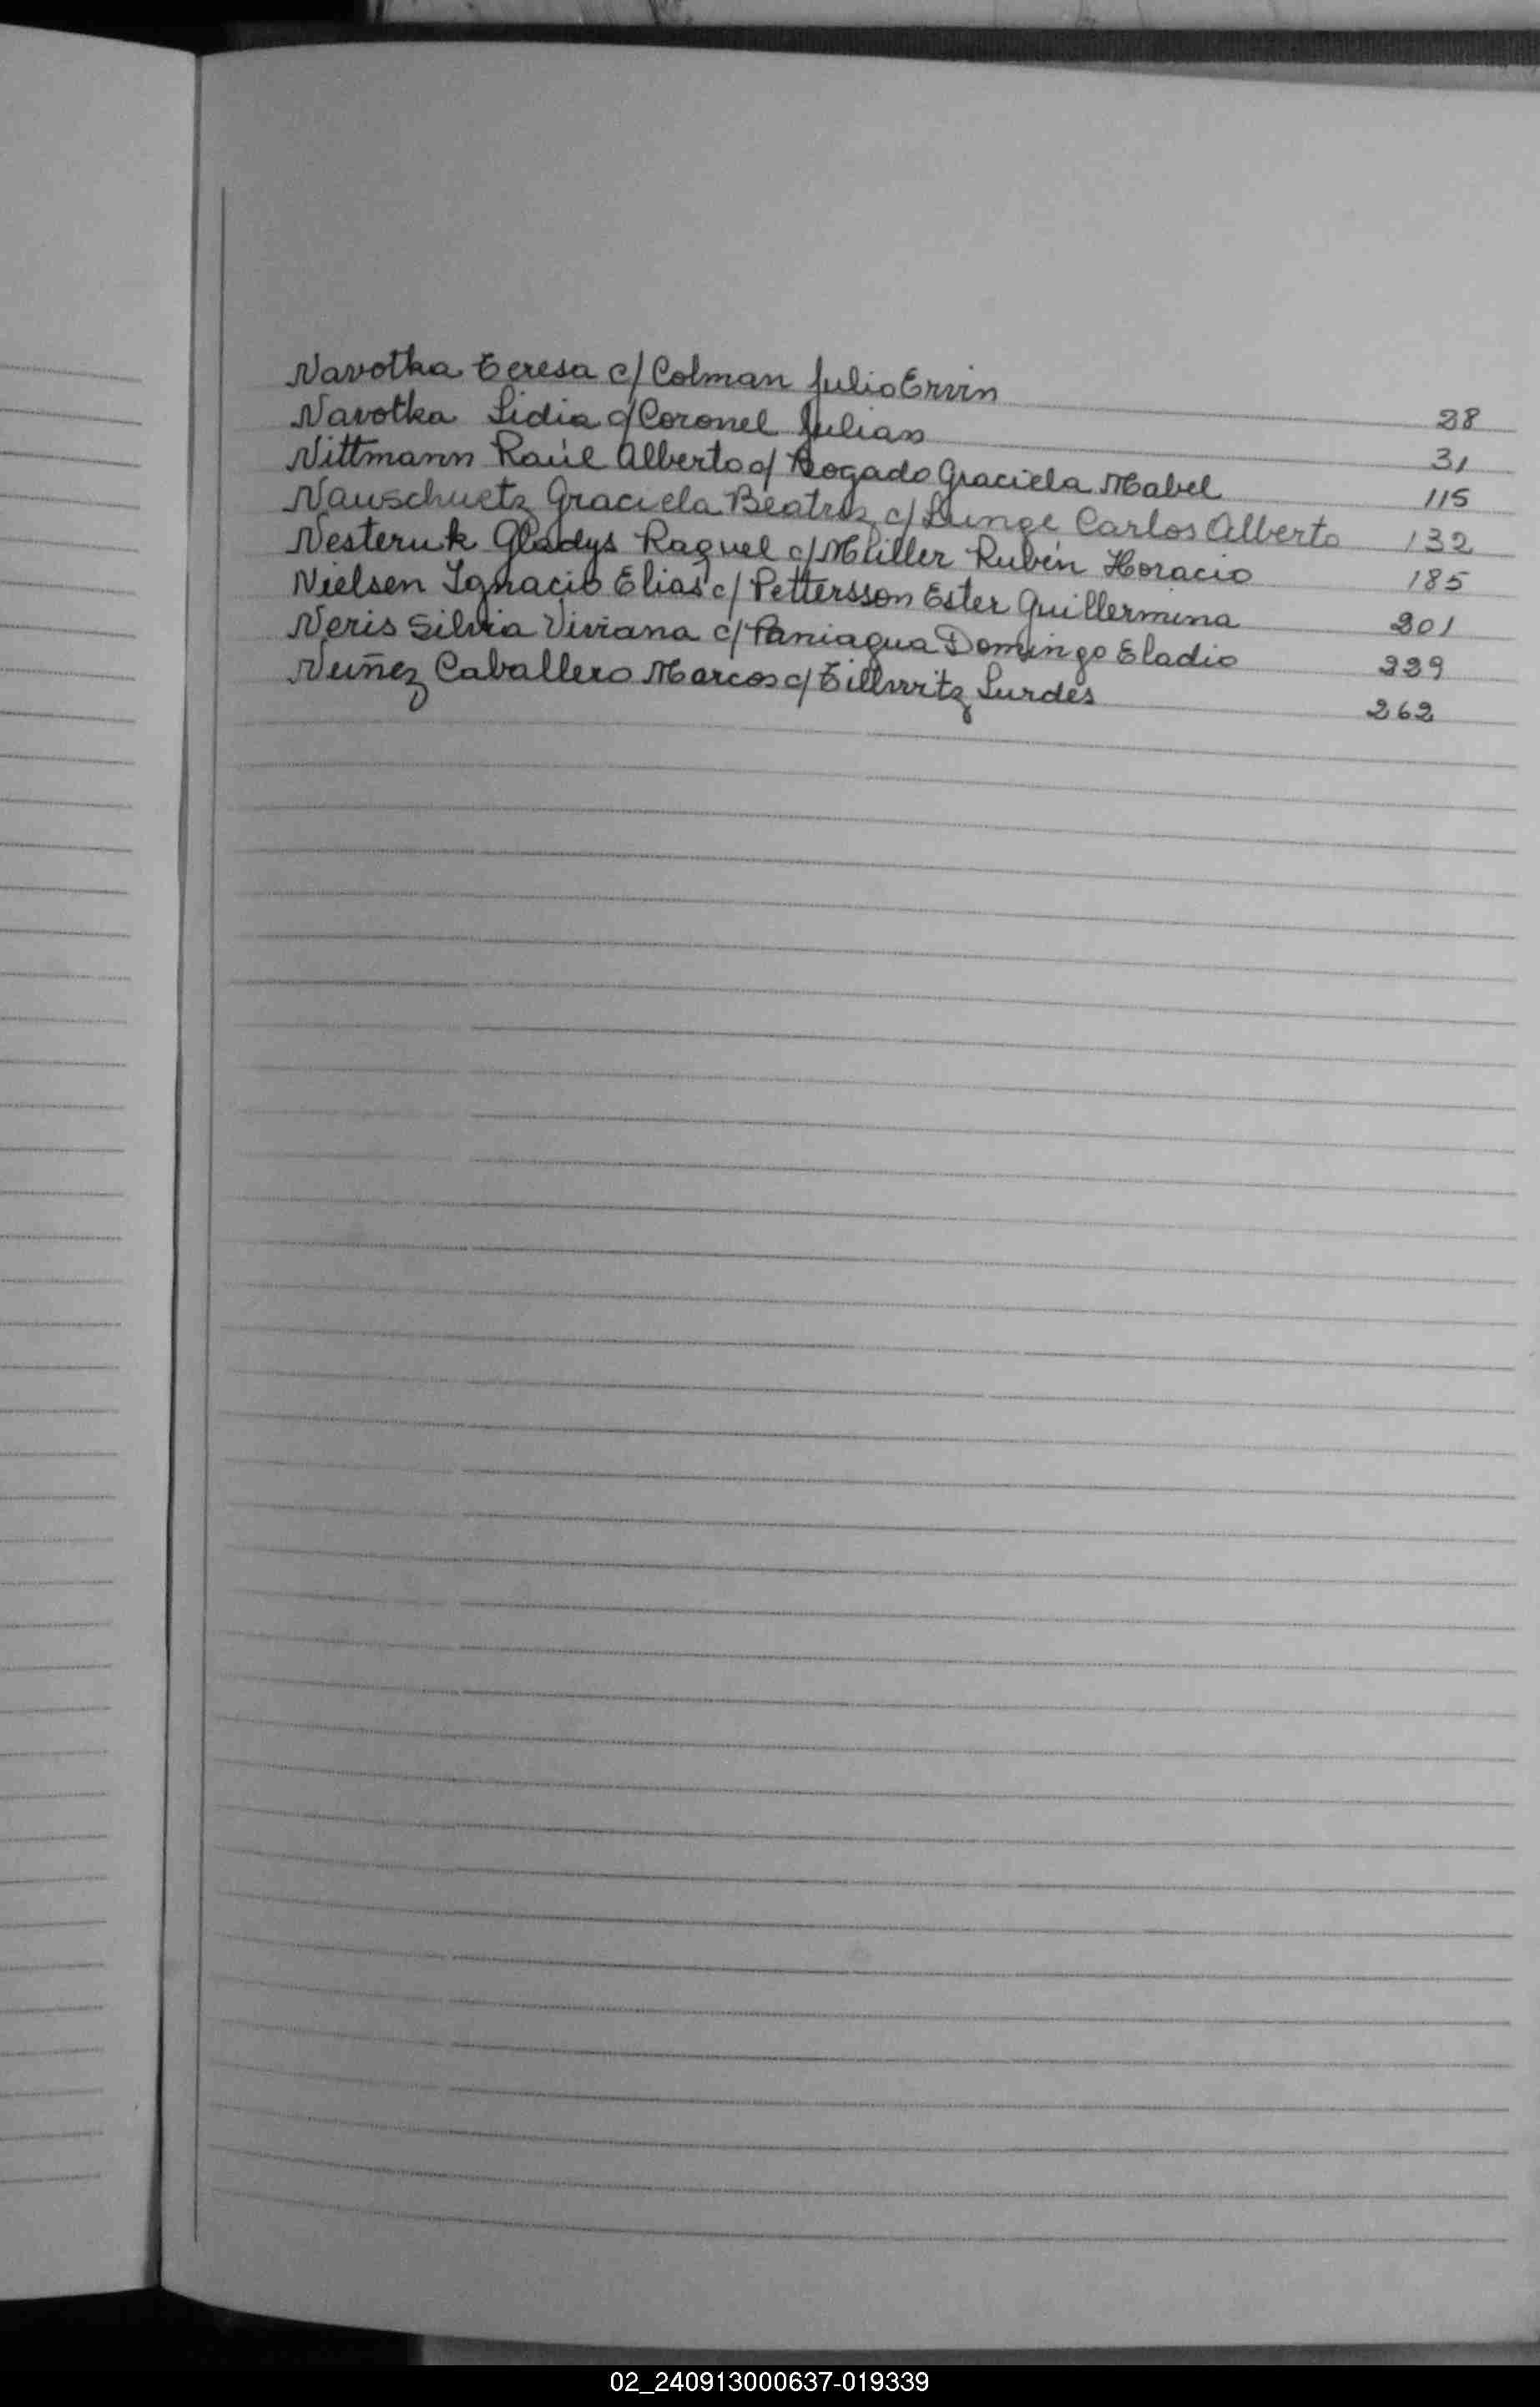 Navotka Teresa c/ Colman Julio Ervin 28
Navotka Lidia c/ Coronel Julian 31
Nittmann Raúl Alberto c/ Bogado Graciela Mabel 115
Nauschuetz Graciela Beatriz c/ Lunge Carlos Alberto 132
Nesteruk Gladys Raquel c/ Müller Rubén Horacio 185
Nielsen Ignacio Elias c/ Pettersson Ester Guillermina 201
Neris Silvia Viviana c/ Paniagua Domingo Eladio 229
Nuñez Caballero Marcos c/ Tillwitz Lurdes 262
02_240913000637-019339